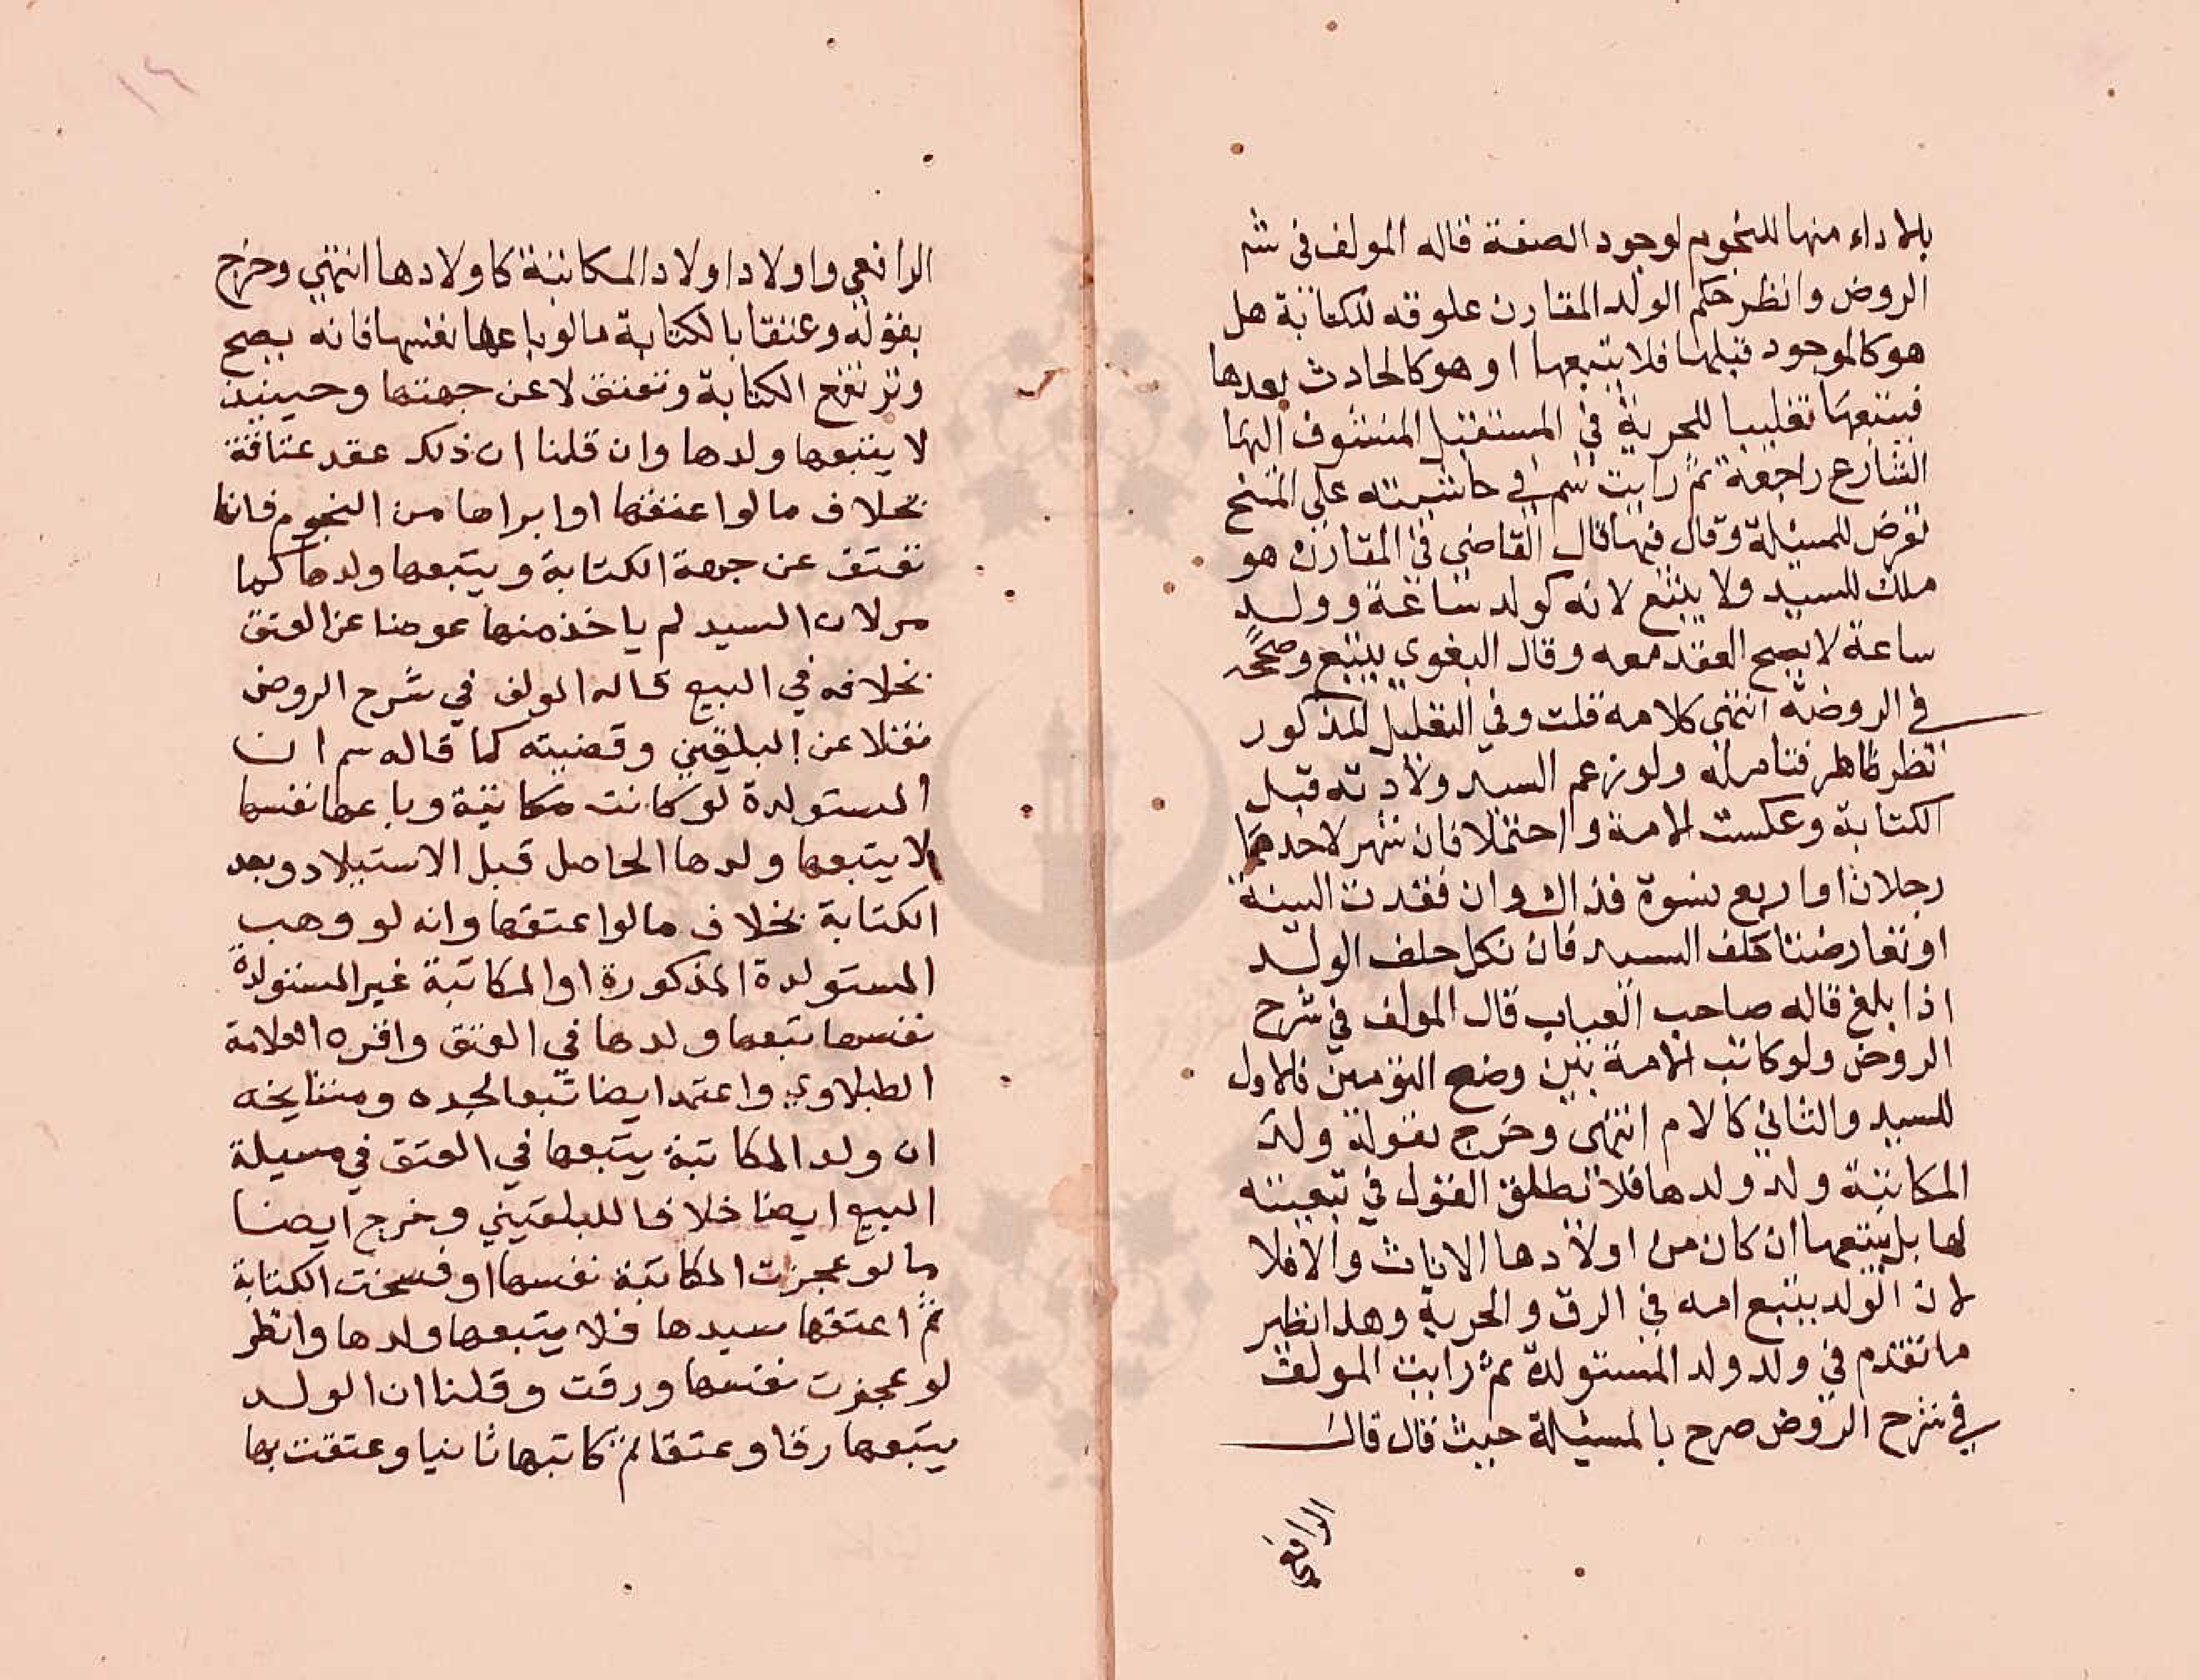 بلا اداء منها للنجوم لوجود الصفة قاله المولف في شر
الروض وانظر حكم الولد المقارن علوقه للكتابة هل
هو كالموجود قبلها فلا يتبعها او هو كالحادث بعدها
فيتبعها تغليبا للحرية في المستقبل المتشوف اليها
الشارع راجعه ثم رايت سم في حاشيته على المنهج
تعرض للمسيلة وقال فيها قال القاضي في المقارن هو
ملك للسيد ولا يتبع لانه كولد ساعة وولد
ساعة لا يصح العقد معه وقال البغوي يتبع وصححه
في الروضة انتهى كلامه قلت وفي التعليل المذكور
نظر ظاهر فتامله ولو زعم السيد ولادته قبل
الكتابة وعكست الامة واحتملا فان شهر لاحدهما
رجلان او اربع نسوة فذاك وان فقدت البينة
او تعارضتا حلف السيد فان نكل حلف الولد
اذا بلغ قاله صاحب العباب قال المولف في شرح
الروض ولو كاتب الامة بين وضع التومين فالاول
للسيد والثاني كالام انتهى وخرج بقوله ولد
المكاتبة ولد ولدها فلا نطلق القول في تبعيته
لها بل يتبعها ان كان من اولادها الاناث والا فلا
لان الولد يتبع امه في الرق والحرية وهذا نظير
ما تقدم في ولد ولد المستولدة ثم رايت المولف
في شرح الروض صرح بالمسيلة حيث قال قال
الرافعي
١٤
الرافعي واولاد اولاد المكاتبة كاولادها انتهى وخرج
بقوله وعتقا بالكتابة ما لو باعها نفسها فانه يصح
وترتفع الكتابة وتعتق لا عن جهتها وحينيذ
لا يتبعها ولدها وان قلنا ان ذلك عقد عتاقة
بخلاف ما لو اعتقها او ابراها من النجوم فانها
تعتق عن جهة الكتابة ويتبعها ولدها كما
مر لان السيد لم ياخذ منها عوضا عن العتق
بخلافه في البيع قاله المولف في شرح الروض
نقلا عن البلقيني وقضيته كما قاله سم ان
المستولدة لو كانت مكاتبة وباعها نفسها
لا يتبعها ولدها الحاصل قبل الاستيلاد وبعد
الكتابة بخلاف ما لو اعتقها وانه لو وهب
المستولدة المذكورة او المكاتبة غير المستولدة
نفسها تبعها ولدها في العتق واقره العلامة
الطبلاوي واعتمد ايضا تبعا لجده ومشايخه
ان ولد المكاتبة يتبعها في العتق في مسيلة
البيع ايضا خلافا للبلقيني وخرج ايضا
ما لو عجزت المكاتبة نفسها او فسخت الكتابة
ثم اعتقها سيدها فلا يتبعها ولدها وانظر
لو عجزت نفسها ورقت وقلنا ان الولد
يتبعها رقا وعتقا ثم كاتبها ثانيا وعتقت بها